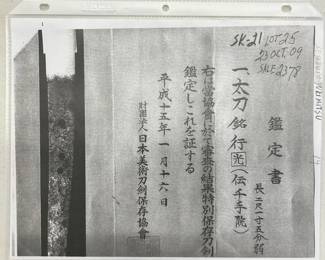 SK-21
LOT-25
23 OCT. 09
SALE 2378
鑑定書
一、太刀 銘 行光(伝千手院)
長 二尺一寸五分弱
右は当協会に於て審査の結果特別保存刀剣
鑑定しこれを証する
平成十五年一月十六日
財団法人 日本美術刀剣保存協會